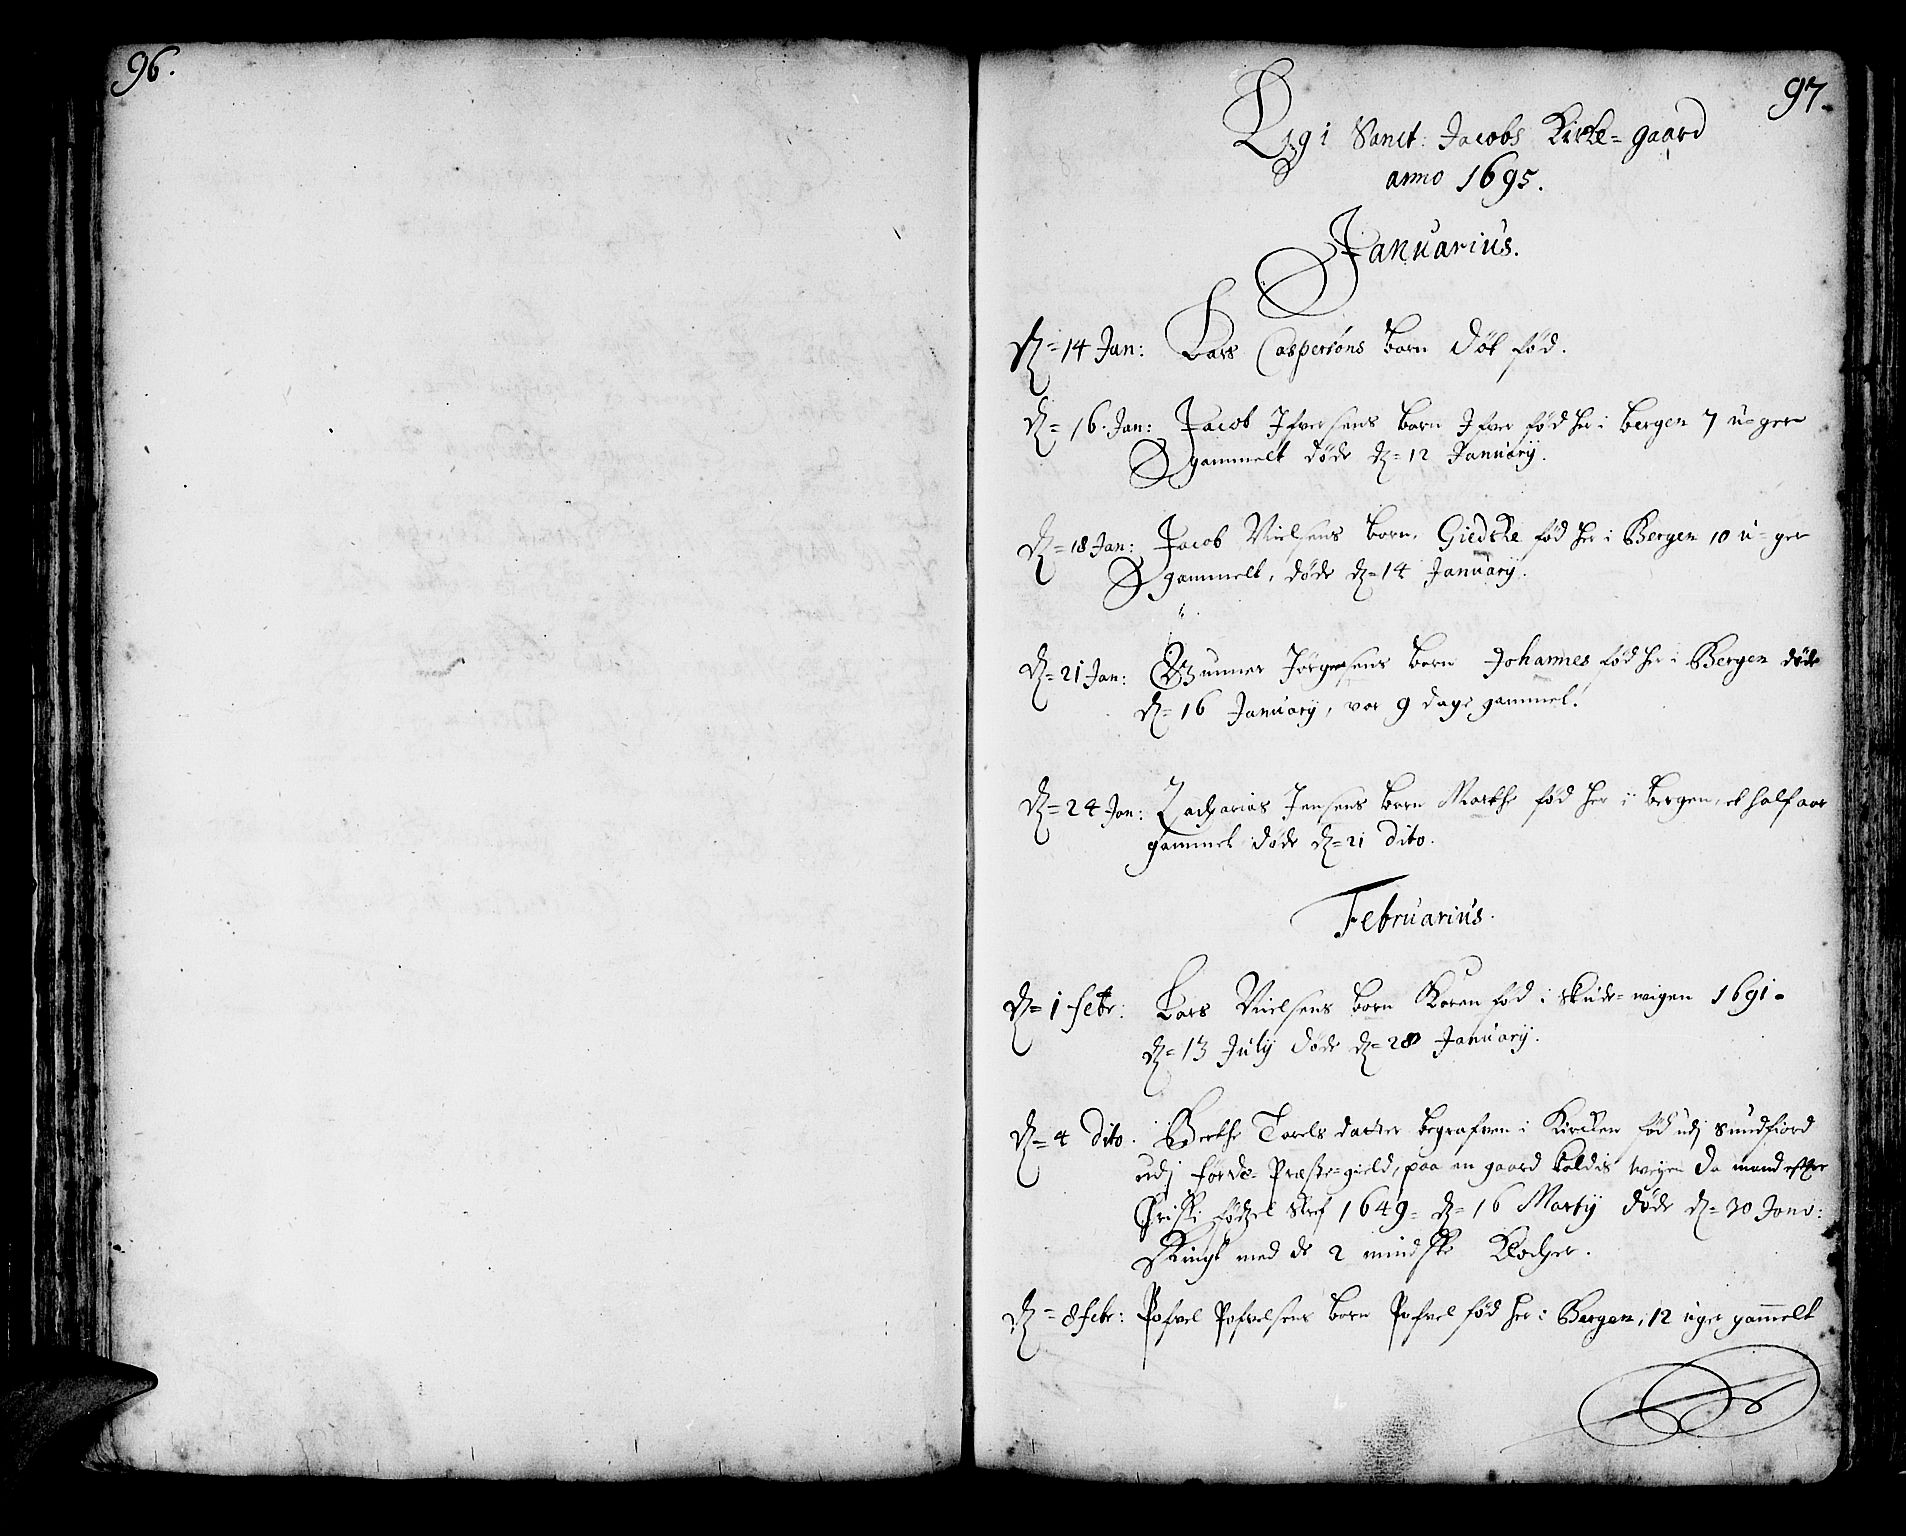 96.
97.
Lig i Sanct. Jacobs Kirke=gaard
anno 1695.
Januarius.
dz=14 Jan: Lars Caspersøns barn døt fød.
dz=16. Jan: Jacob Ifversens barn Ifver fød her i Bergen 7 u=ger
gammelt døde dz=12 Januarÿ.
dz=18 Jan: Jacob Nielsens barn. Giedske fød her i Bergen 10 u=ger
gammelt, døde dz=14 Januarÿ.
dz=21 Jan: Gunner Jørgensens barn Johannes fød her i Bergen døde
dz=16 Januarÿ, var 9 dage gammel.
dz=24 Jan: Zacharias Jensens barn Marthe fød her i Bergen, et half aar
gammel døde dz=21 dito.
Februarius.
dz=1 febr: Lars Nielsens barn Karen fød i Skude=wigen 1691=
dz=13 Julÿ døde dz=28 Januarÿ.
dz=4 dito. Berthe Tarels datter begrafven i Kircken fød udj Sundfiord
udj førde=Præste=gield, paa en gaard kaldis da mand efter
Christi fødzel Skref 1649= dz=16 Martÿ døde dz=30 Janv:
Ringt med de 2 mindste Klocher.
dz=8 febr: Pofvel Pofvelsens barn Pofvel fød her i Bergen, 12 uger gam̅elt